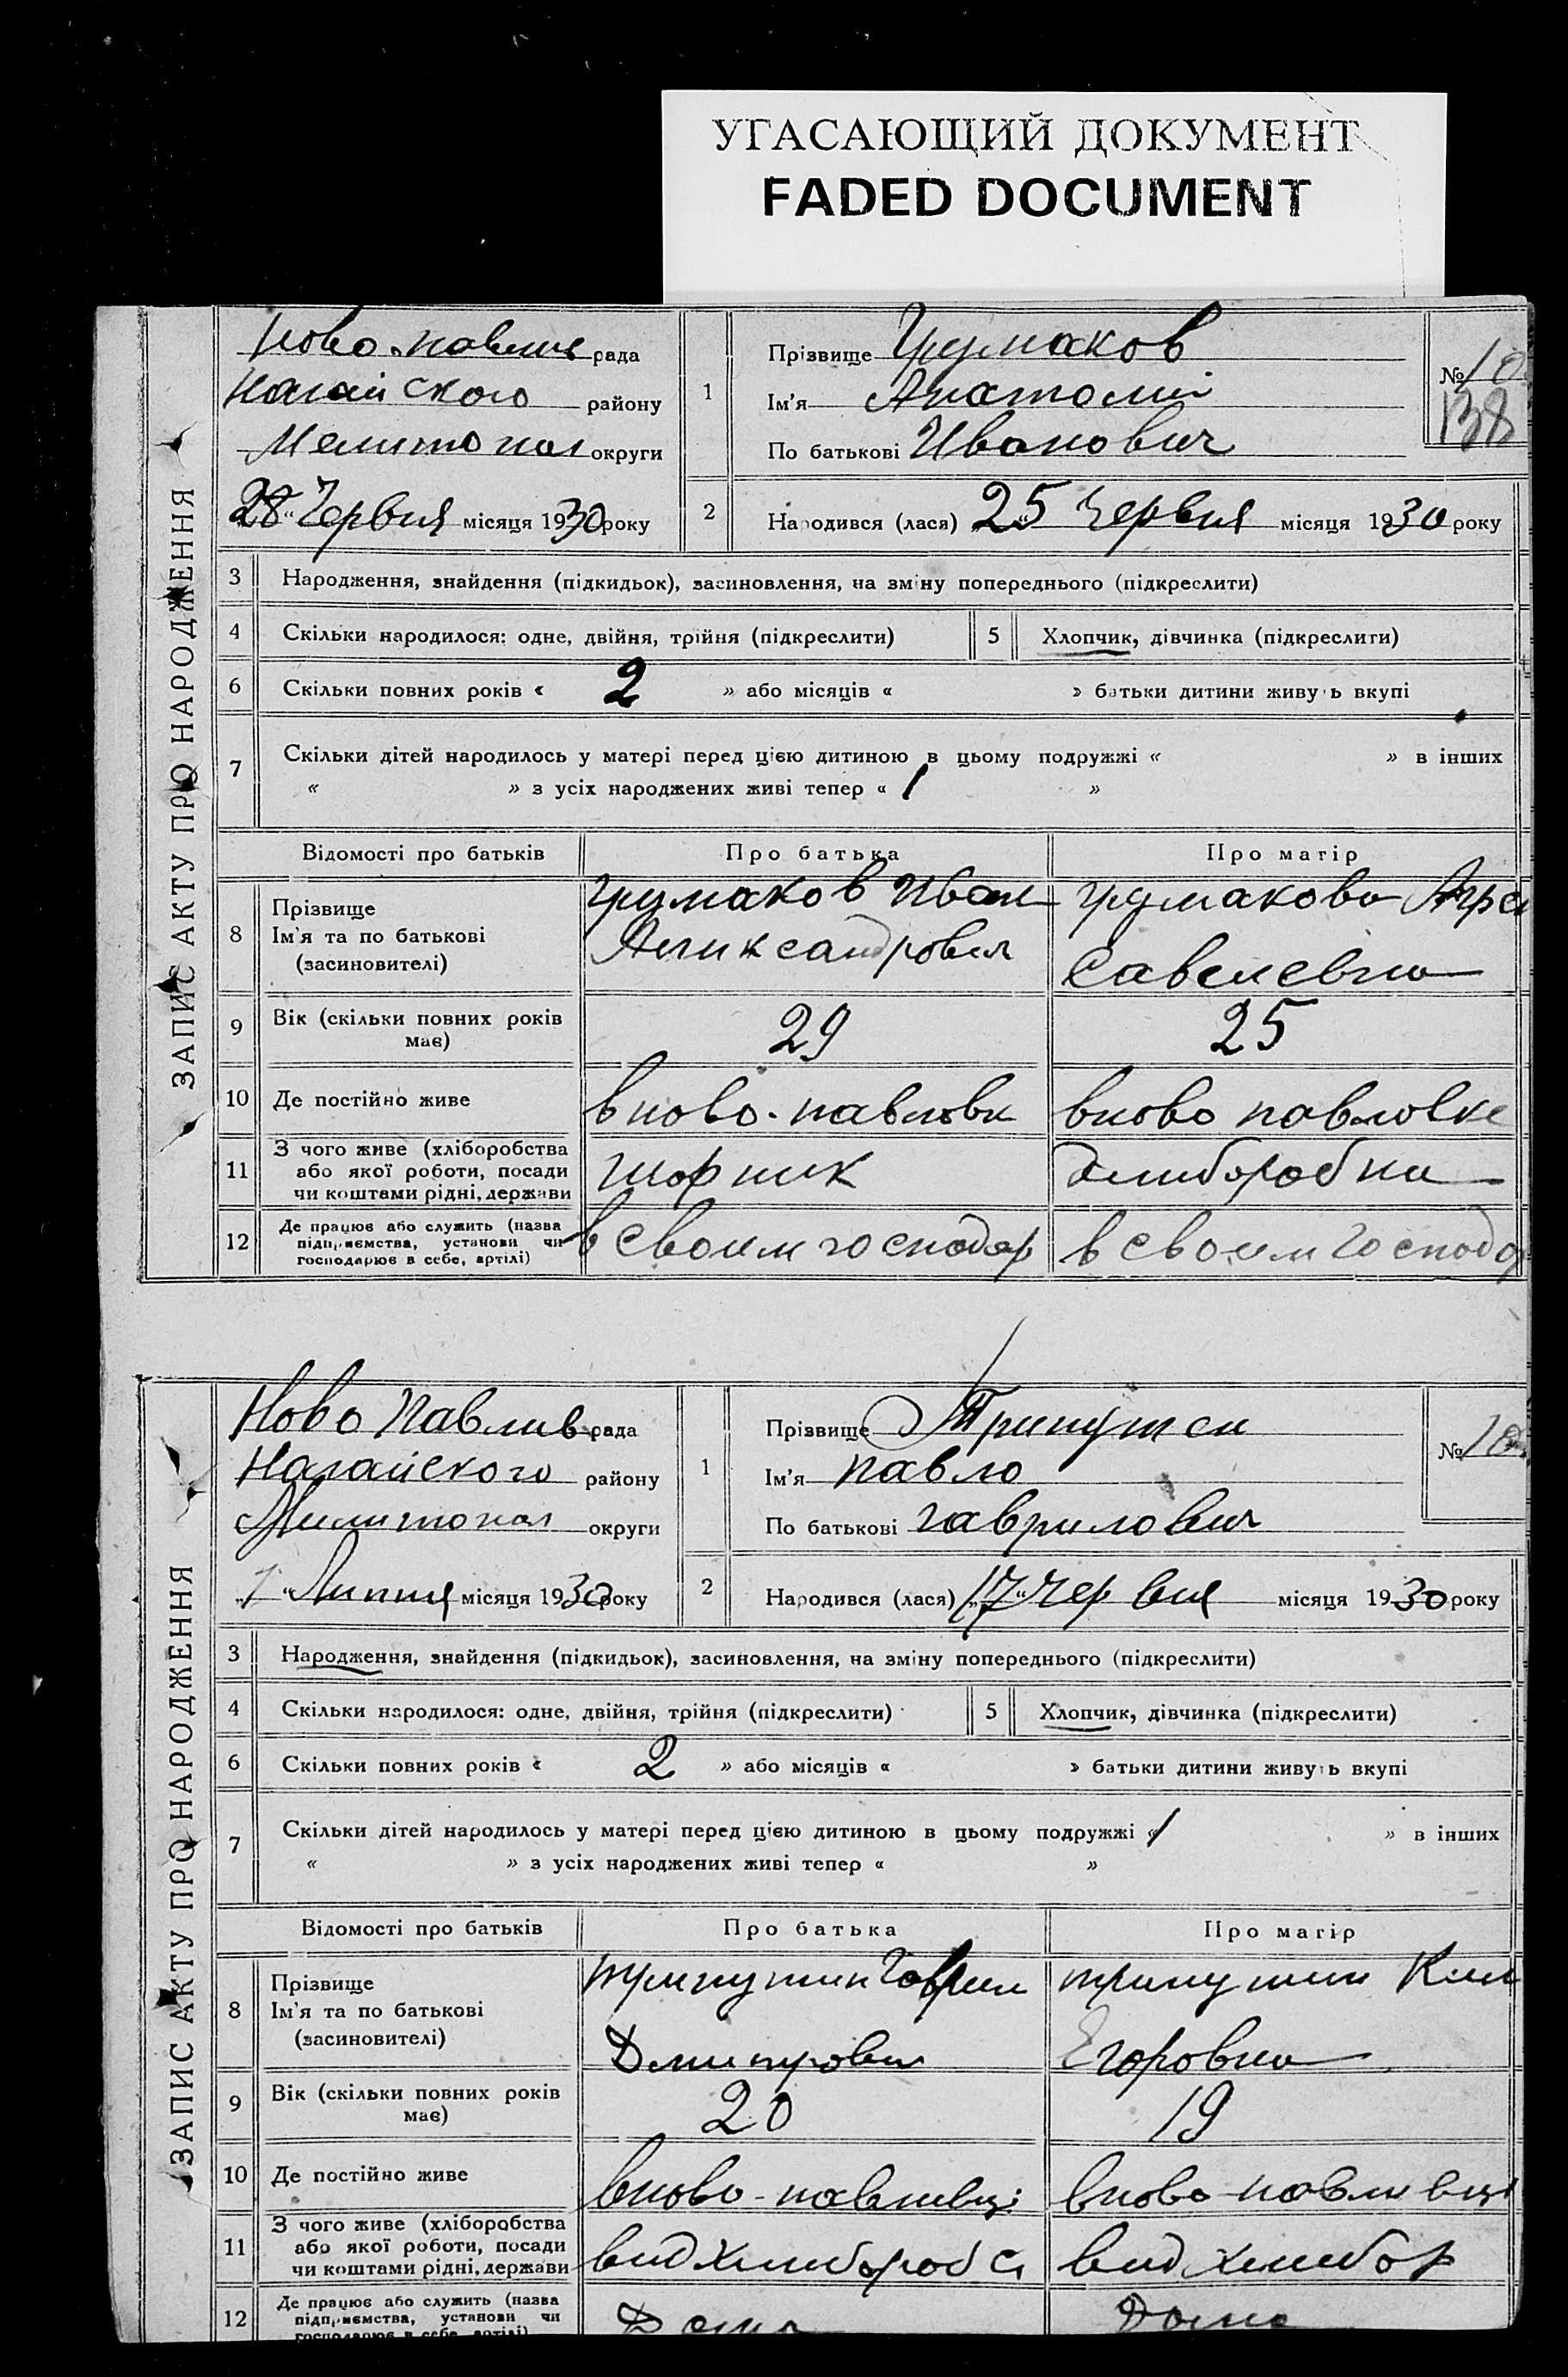 УГАСАЮЩИЙ ДОКУМЕНТ
FADED DOCUMENT
ЗАПИС АКТУ ПРО НАРОДЖЕННЯ
Ново-павлив рада
Нагайского району
Мелитопол округи
28 Червня місяця 1930 року
1
Прізвище Чумаков
Ім'я Анатолий
По батькові Иванович
№ 10
138
2
Народився (лася) 25 Червня місяця 1930 року
3 Народження, знайдення (підкидьок), засиновлення, на зміну попереднього (підкреслити)
4 Скільки народилося: одне, двійня, трійня (підкреслити) 5 Хлопчик, дівчинка (підкреслити)
6 Скільки повних років « 2 » або місяців « » батьки дитини живуть вкупі
7 Скільки дітей народилось у матері перед цією дитиною в цьому подружжі « » в інших
« » з усіх народжених живі тепер « 1 »
Відомості про батьків Про батька Про матір
8 Прізвище
Ім'я та по батькові
(засиновителі)
Иван
Александрович
Савелевна
9 Вік (скільки повних років має) 29 25
10 Де постійно живе вново-павловки вново павловке
11 З чого живе (хліборобства
або якої роботи, посади
чи коштами рідні, держави
шорник
12 Де працює або служить (назва
підприємства, установи чи
господарює в себе, артілі)
в своем господар в своем господар
ЗАПИС АКТУ ПРО НАРОДЖЕННЯ
Ново Павлив рада
Нагайского району
Милитопол округи
1 Липня місяця 1930 року
1
Прізвище Трипутен
Ім'я павло
По батькові гаврилович
№ 10
2
Народився (лася) 17 Червня місяця 1930 року
3 Народження, знайдення (підкидьок), засиновлення, на зміну попереднього (підкреслити)
4 Скільки народилося: одне, двійня, трійня (підкреслити) 5 Хлопчик, дівчинка (підкреслити)
6 Скільки повних років « 2 » або місяців « » батьки дитини живуть вкупі
7 Скільки дітей народилось у матері перед цією дитиною в цьому подружжі « 1 » в інших
« » з усіх народжених живі тепер « »
Відомості про батьків Про батька Про матір
8 Прізвище
Ім'я та по батькові
(засиновителі)
трипутин Гаврил
Дмитрович
трипутин
Егоровна
9 Вік (скільки повних років має) 20 19
10 Де постійно живе вново-павливці вново-павливці
11 З чого живе (хліборобства
або якої роботи, посади
чи коштами рідні, держави
вид хлиборобс вид хлибор
12 Де працює або служить (назва
підприємства, установи чи
господарює в себе, артілі)
Дома Дома